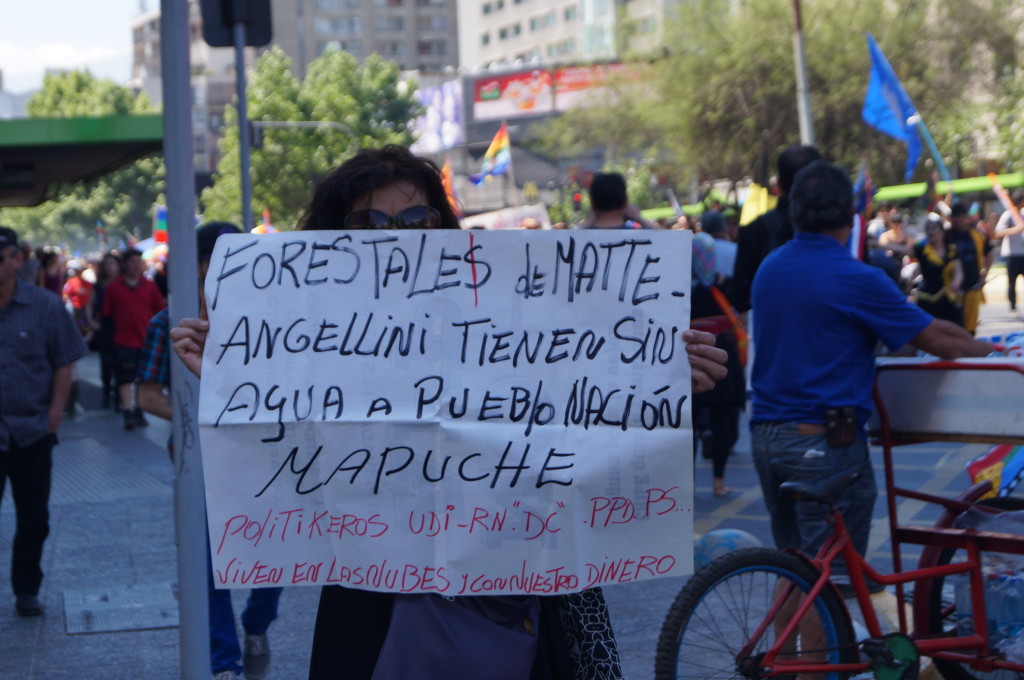 FORESTALES de MATTE-
ANGELLINI TIENEN SIN
AGUA A PUEBlO NACIÓN
MAPUCHE
POLITIKEROS UDI-RN."DC" .PPD.PS...
VIVEN EN LAS NUBES Y CON NUESTRO DINERO